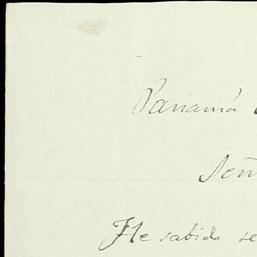 Panamá
Señ
He sabido se